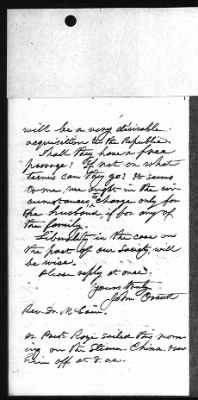 will be a very desirable
acquisition to the Republic.
Shall they have a free
passage? If not on what
terms can they go? It seems
to me, we might in the cir-
cumstances, charge only for
the husband, if for any of
the family.
Liberality in the case on
the part of our Society, will
be wise.
Please reply at once.
Yours truly
John Orcutt
Rev. Dr. McLain.
sailed this morn
ing on the Steamer China.
off at